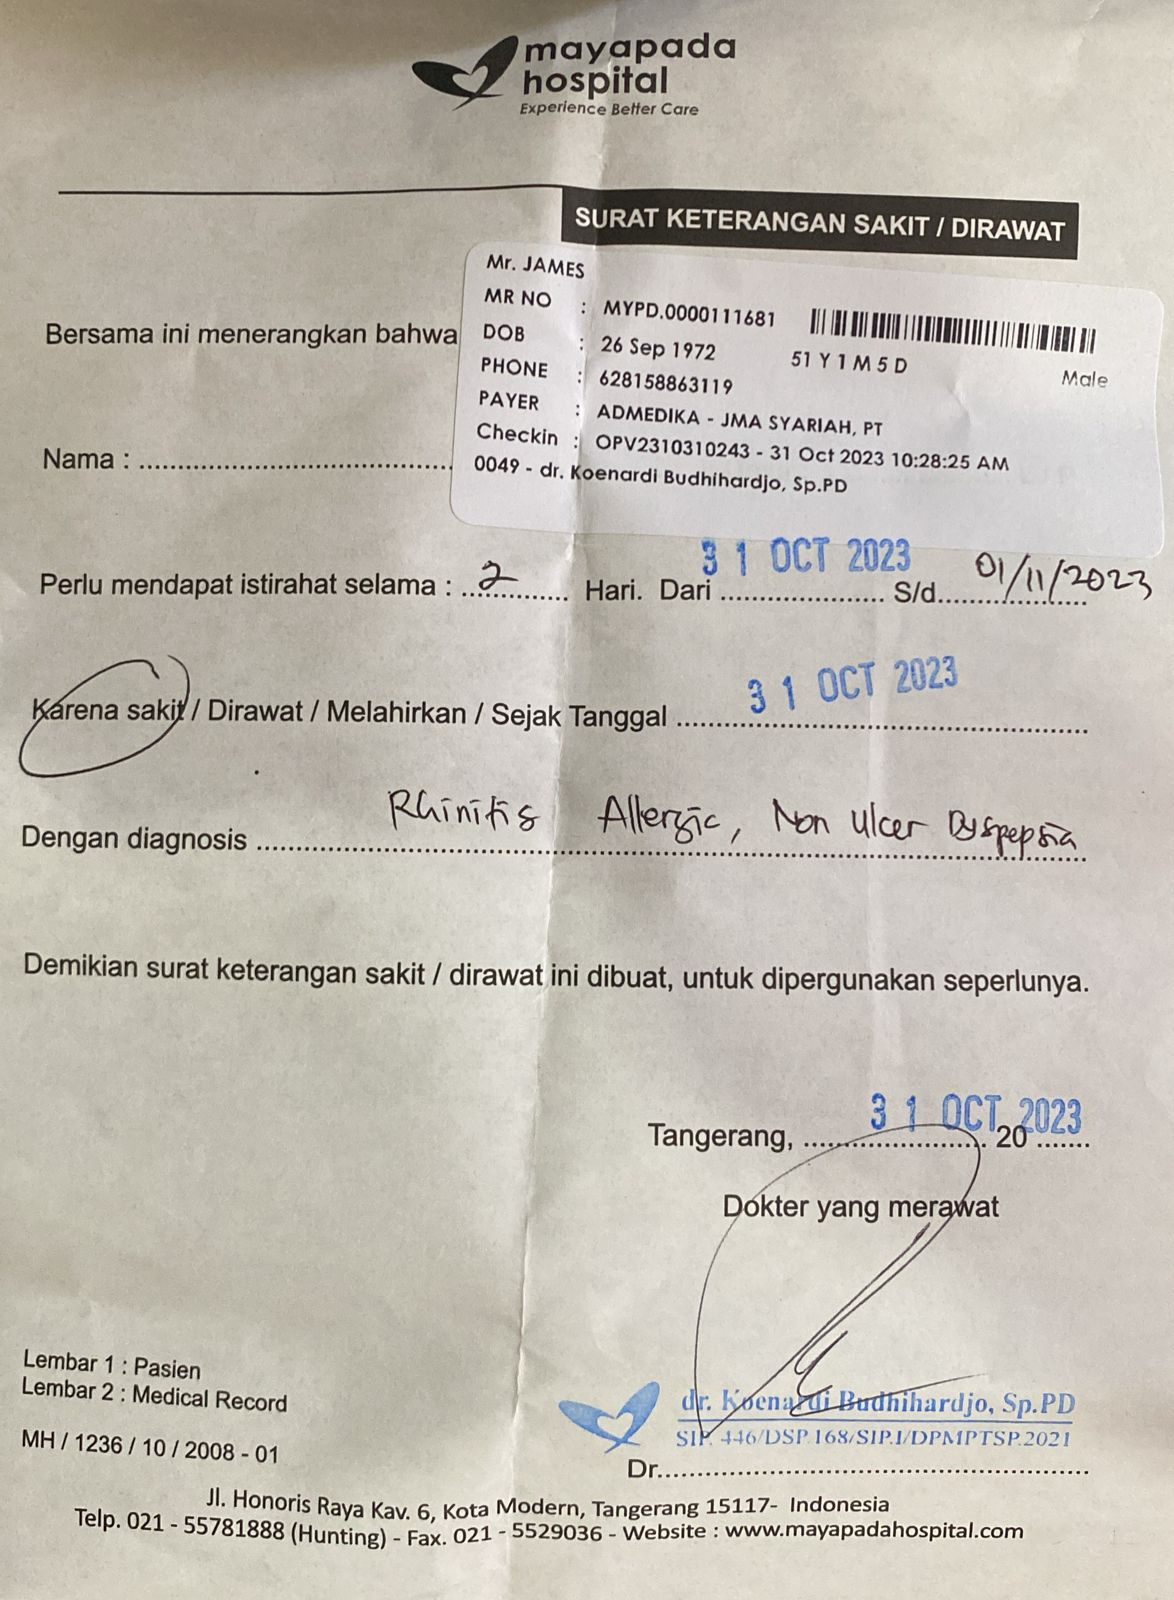 mayapada
hospital
Experience Better Care
SURAT KETERANGAN SAKIT / DIRAWAT
Mr. JAMES
MR NO : MYPD.0000111681
Bersama ini menerangkan bahwa
DOB : 26 Sep 1972 51 Y 1 M 5 D Male
PHONE : 628158863119
PAYER : ADMEDIKA - JMA SYARIAH, PT
Checkin : OPV2310310243 - 31 Oct 2023 10:28:25 AM
Nama : ........................................
0049 - dr. Koenardi Budhihardjo, Sp.PD
Perlu mendapat istirahat selama : 2 Hari. Dari 31 OCT 2023 S/d 01/11/2023
Karena sakit / Dirawat / Melahirkan / Sejak Tanggal 31 OCT 2023
Dengan diagnosis Rhinitis Allergic, Non Ulcer Dyspepsia
Demikian surat keterangan sakit / dirawat ini dibuat, untuk dipergunakan seperlunya.
Tangerang, 31 OCT 20 2023
Dokter yang merawat
Lembar 1 : Pasien
Lembar 2 : Medical Record
dr. Koenardi Budhihardjo, Sp.PD
SIP. 446/DSP.168/SIP.I/DPMPTSP.2021
MH / 1236 / 10 / 2008 - 01
Dr............................................................
Jl. Honoris Raya Kav. 6, Kota Modern, Tangerang 15117- Indonesia
Telp. 021 - 55781888 (Hunting) - Fax. 021 - 5529036 - Website : www.mayapadahospital.com